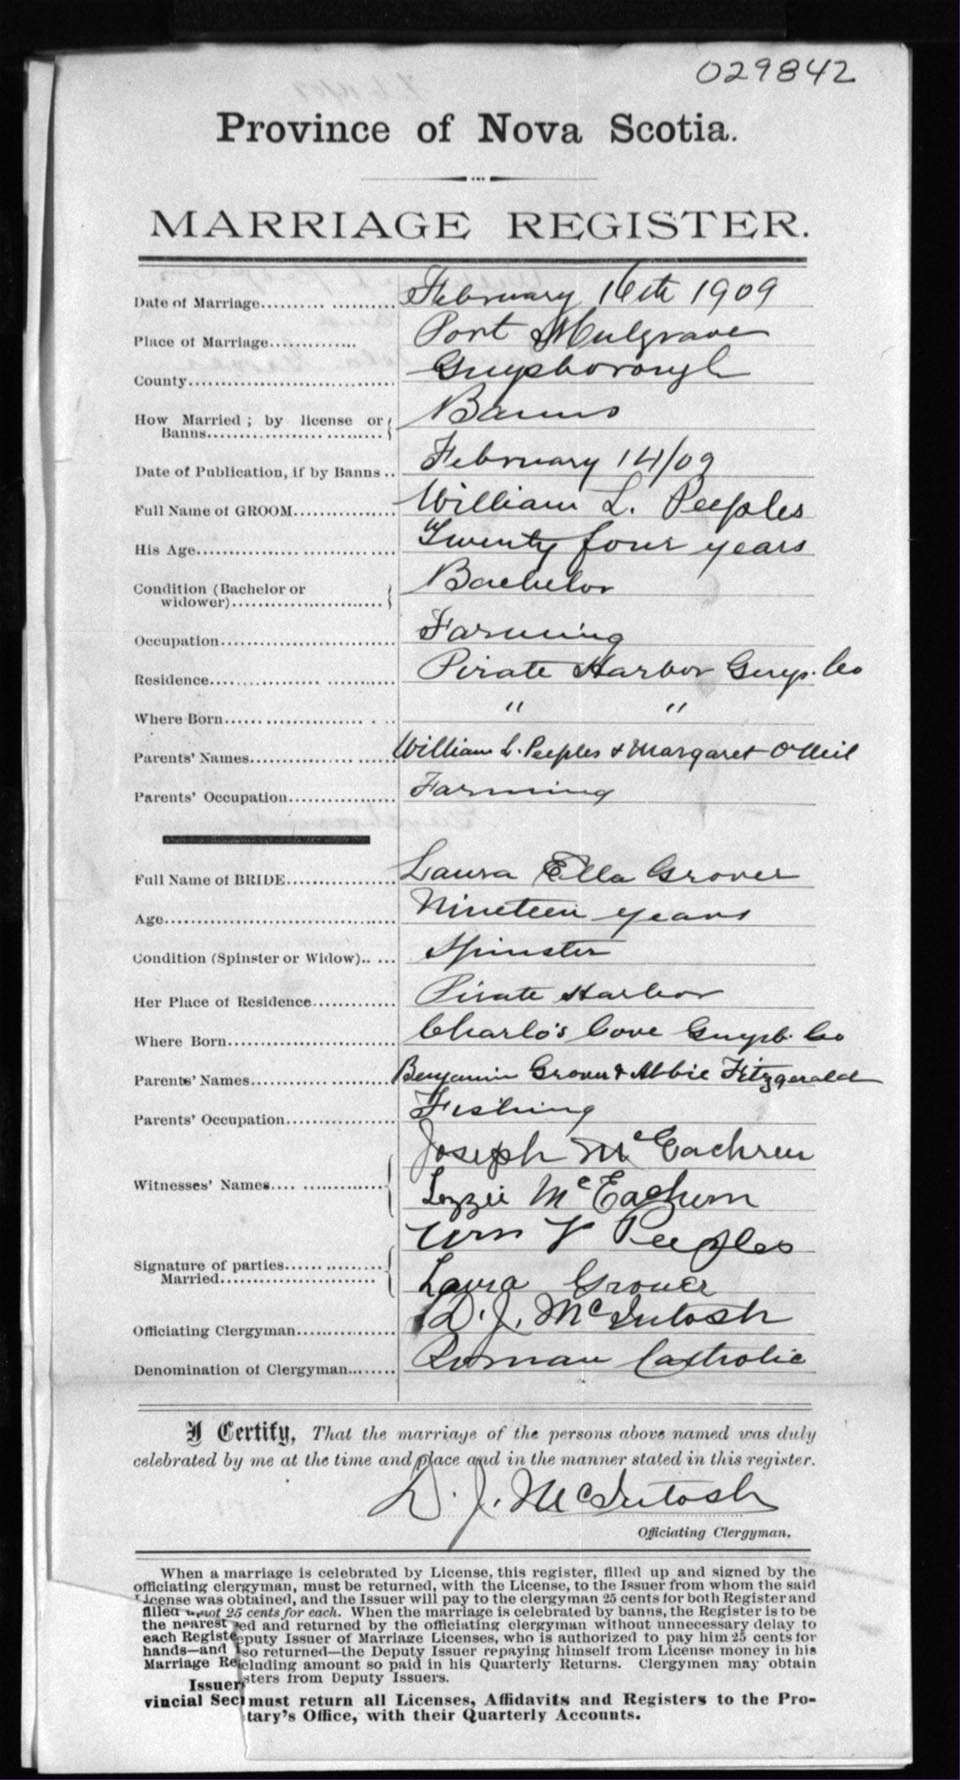 029842
Province of Nova Scotia.
MARRIAGE REGISTER.
Date of Marriage.......... .......... February 16th 1909
Place of Marriage............. Port Mulgrave
County.................................. Guysborough
How Married ; by license or Banns................. ......... Banns
Date of Publication, if by Banns .. February 14/09
Full Name of GROOM............... William L. Peeples
His Age................. .................. Twenty four years
Condition (Bachelor or widower)......................... Bachelor
Occupation............................. Farming
Residence................ .............. Pirate Harbor Guys. Co
Where Born..................... . .. " "
Parents' Names............... ......... William L. Peeples & Margaret O'Neil
Parents' Occupation.................. Farming
Full Name of BRIDE.................. Laura Ella Grover
Age...................................... Nineteen years
Condition (Spinster or Widow).. .... Spinster
Her Place of Residence............. Pirate Harbor
Where Born............................ Charlo's Cove Guysb. Co
Parents' Names....................... Benjamin Grover & Abbie Fitzgerald
Parents' Occupation.................. Fishing
Joseph McEachren
Witnesses' Names.... ............... Lizzie McEachern
Wm Peeples
Signature of parties Married.......................... Laura Grover
Officiating Clergyman................ D. J. McIntosh
Denomination of Clergyman........ Roman Catholic
I Certify, That the marriage of the persons above named was duly
celebrated by me at the time and place and in the manner stated in this register.
D. J. McIntosh
Officiating Clergyman.
When a marriage is celebrated by License, this register, filled up and signed by the
officiating clergyman, must be returned, with the License, to the Issuer from whom the said
License was obtained, and the Issuer will pay to the clergyman 25 cents for both Register and
filled not 25 cents for each. When the marriage is celebrated by banns, the Register is to be
the nearest ed and returned by the officiating clergyman without unnecessary delay to
each Registe puty Issuer of Marriage Licenses, who is authorized to pay him 25 cents for
hands—and so returned—the Deputy Issuer repaying himself from License money in his
Marriage Re cluding amount so paid in his Quarterly Returns. Clergymen may obtain
Issuer sters from Deputy Issuers.
vincial Sec must return all Licenses, Affidavits and Registers to the Pro-
tary's Office, with their Quarterly Accounts.